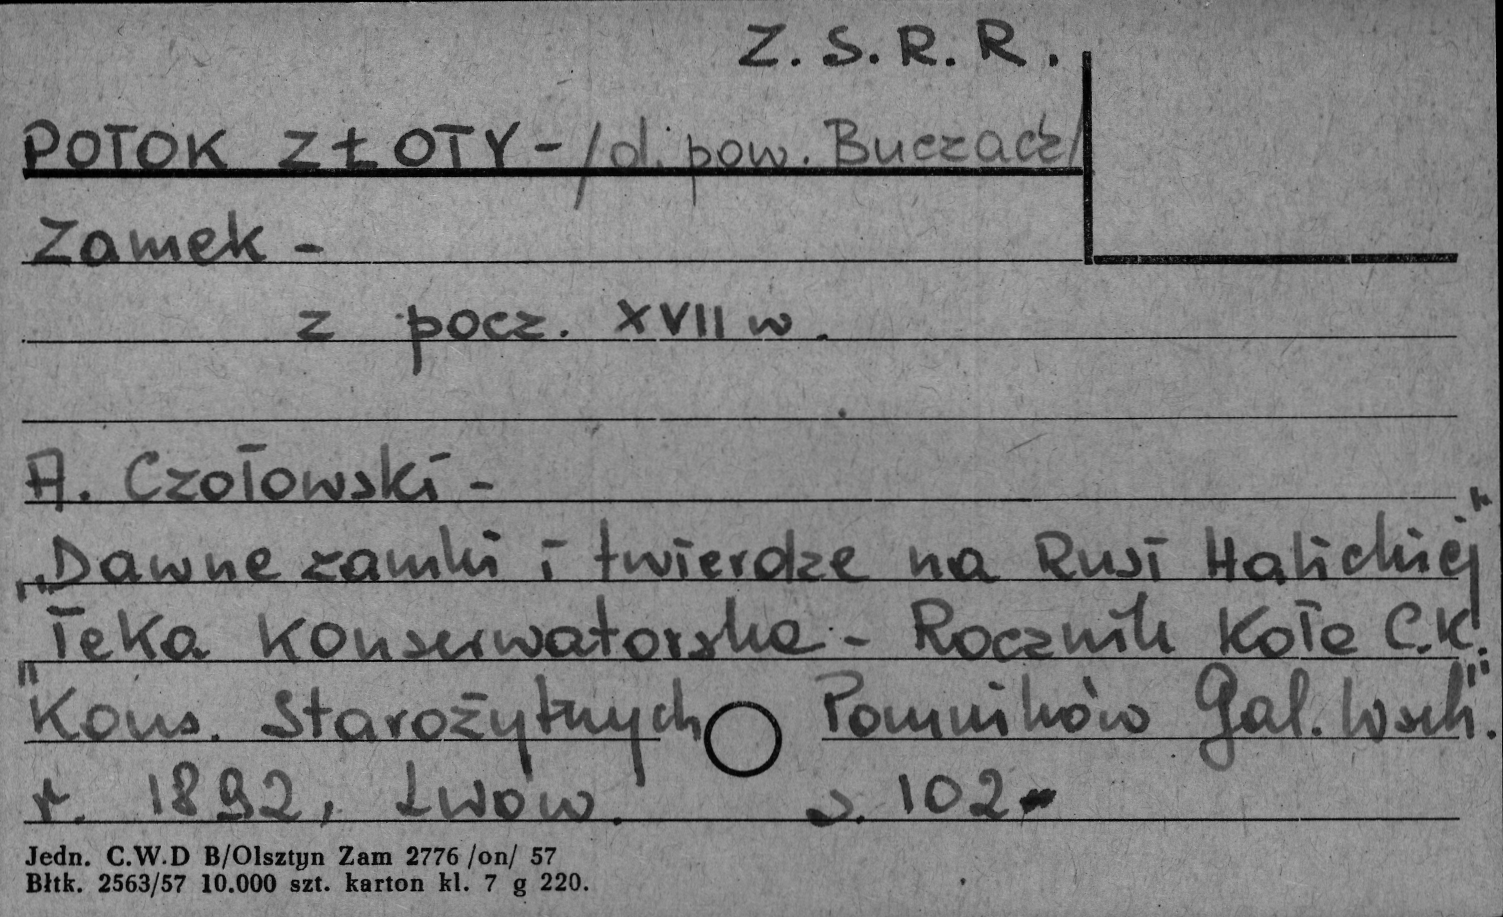 Z.S.R.R.
POTOK ZŁOTY - /d. pow. Buczacz/
Zamek -
z pocz. XVII w.
A. Czołowski -
„Dawne zamki i twierdze na Rusi Halickiej"
"Teka Konserwatorska - Rocznik Koła C.K.
Kons. Starożytnych Pomników Gal. Wsch."
r. 1892, Lwów. s. 102-
Jedn. C.W.D B/Olsztyn Zam 2776 /on/ 57
Błtk. 2563/57 10.000 szt. karton kl. 7 g 220.